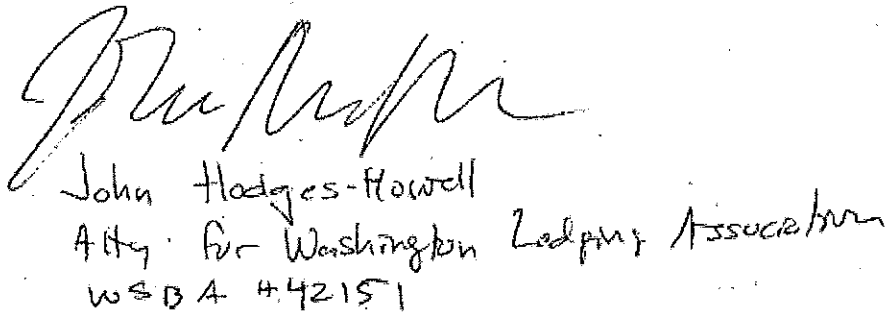 John Hodges-Howell
Atty. for Washington Lodging Association
WSBA #42151